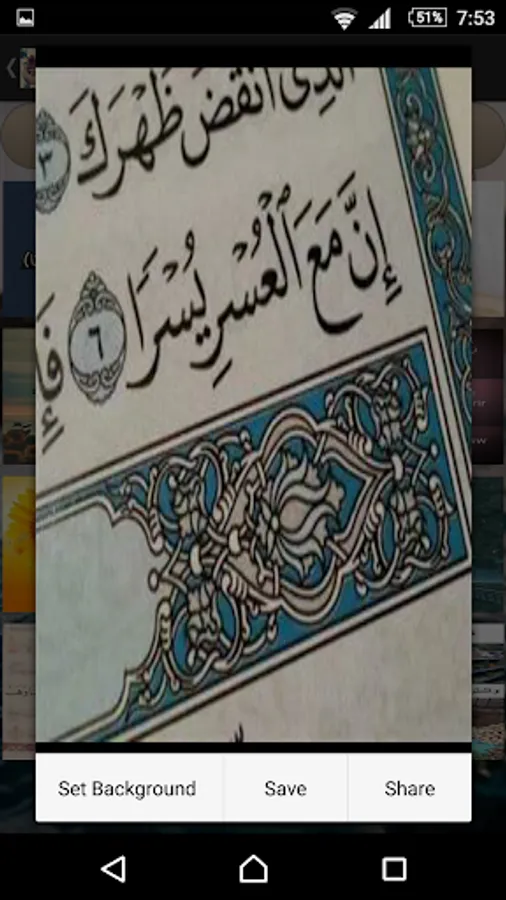 51% 7:53
ٱلَّذِىٓ أَنقَضَ ظَهْرَكَ ٣
إِنَّ مَعَ ٱلْعُسْرِ يُسْرًا ٦
Set Background Save Share